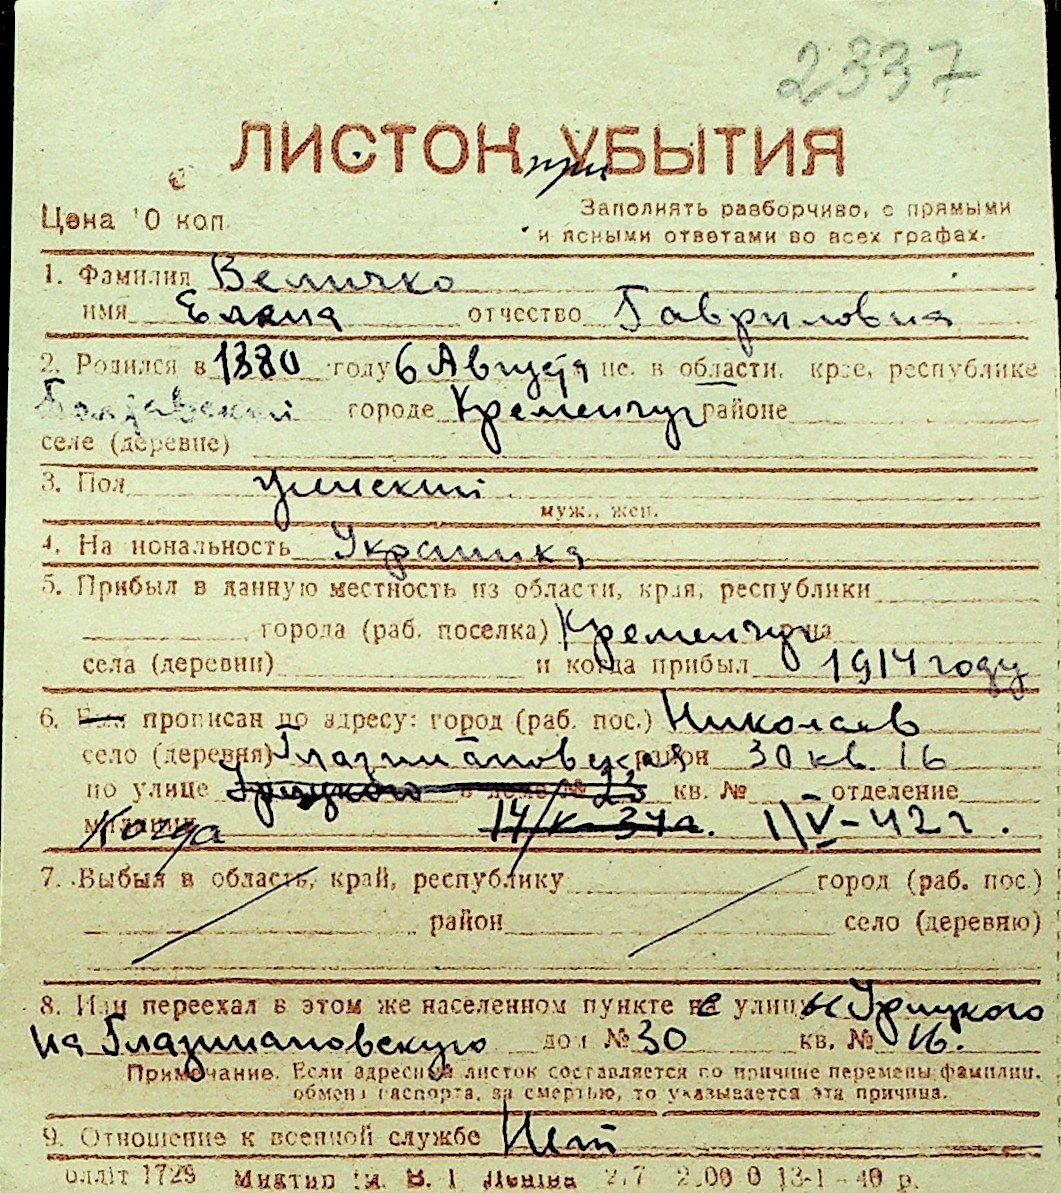 2337
ЛИСТОК при УБЫТИЯ
Цена 10 коп. Заполнять разборчиво, с прямыми
и ясными ответами во всех графах.
1. Фамилия Величко
имя Елена отчество Гавриловна
2. Родился в 1880 году 6 Августа м-це. в области, крае, республике
Полтавский городе Кременчуг районе
селе (деревне)
3. Пол женский
муж., жен.
4. Национальность Украинка
5. Прибыл в данную местность из области, края, республики
города (раб. поселка) Кременчуг
села (деревни) и когда прибыл 1914 году
6. Был прописан по адресу: город (раб. пос.) Николаев
село (деревня) Глазинановская район 30 кв. 16
по улице Урицкого в доме № 23 кв. № отделение
милиции Когда 14/V-37г. 1/V-42г.
7. Выбыл в область, край, республику город (раб. пос.)
район село (деревню)
8. Или переехал в этом же населенном пункте на с улицы Урицкого
на Глазинановскую дом № 30 кв. № 16.
Примечание. Если адресный листок составляется по причине перемены фамилии,
обмена паспорта, за смертью, то указывается эта причина.
9. Отношение к военной службе Нет
1729 ім. В. І. Леніна 13-1-40 р.